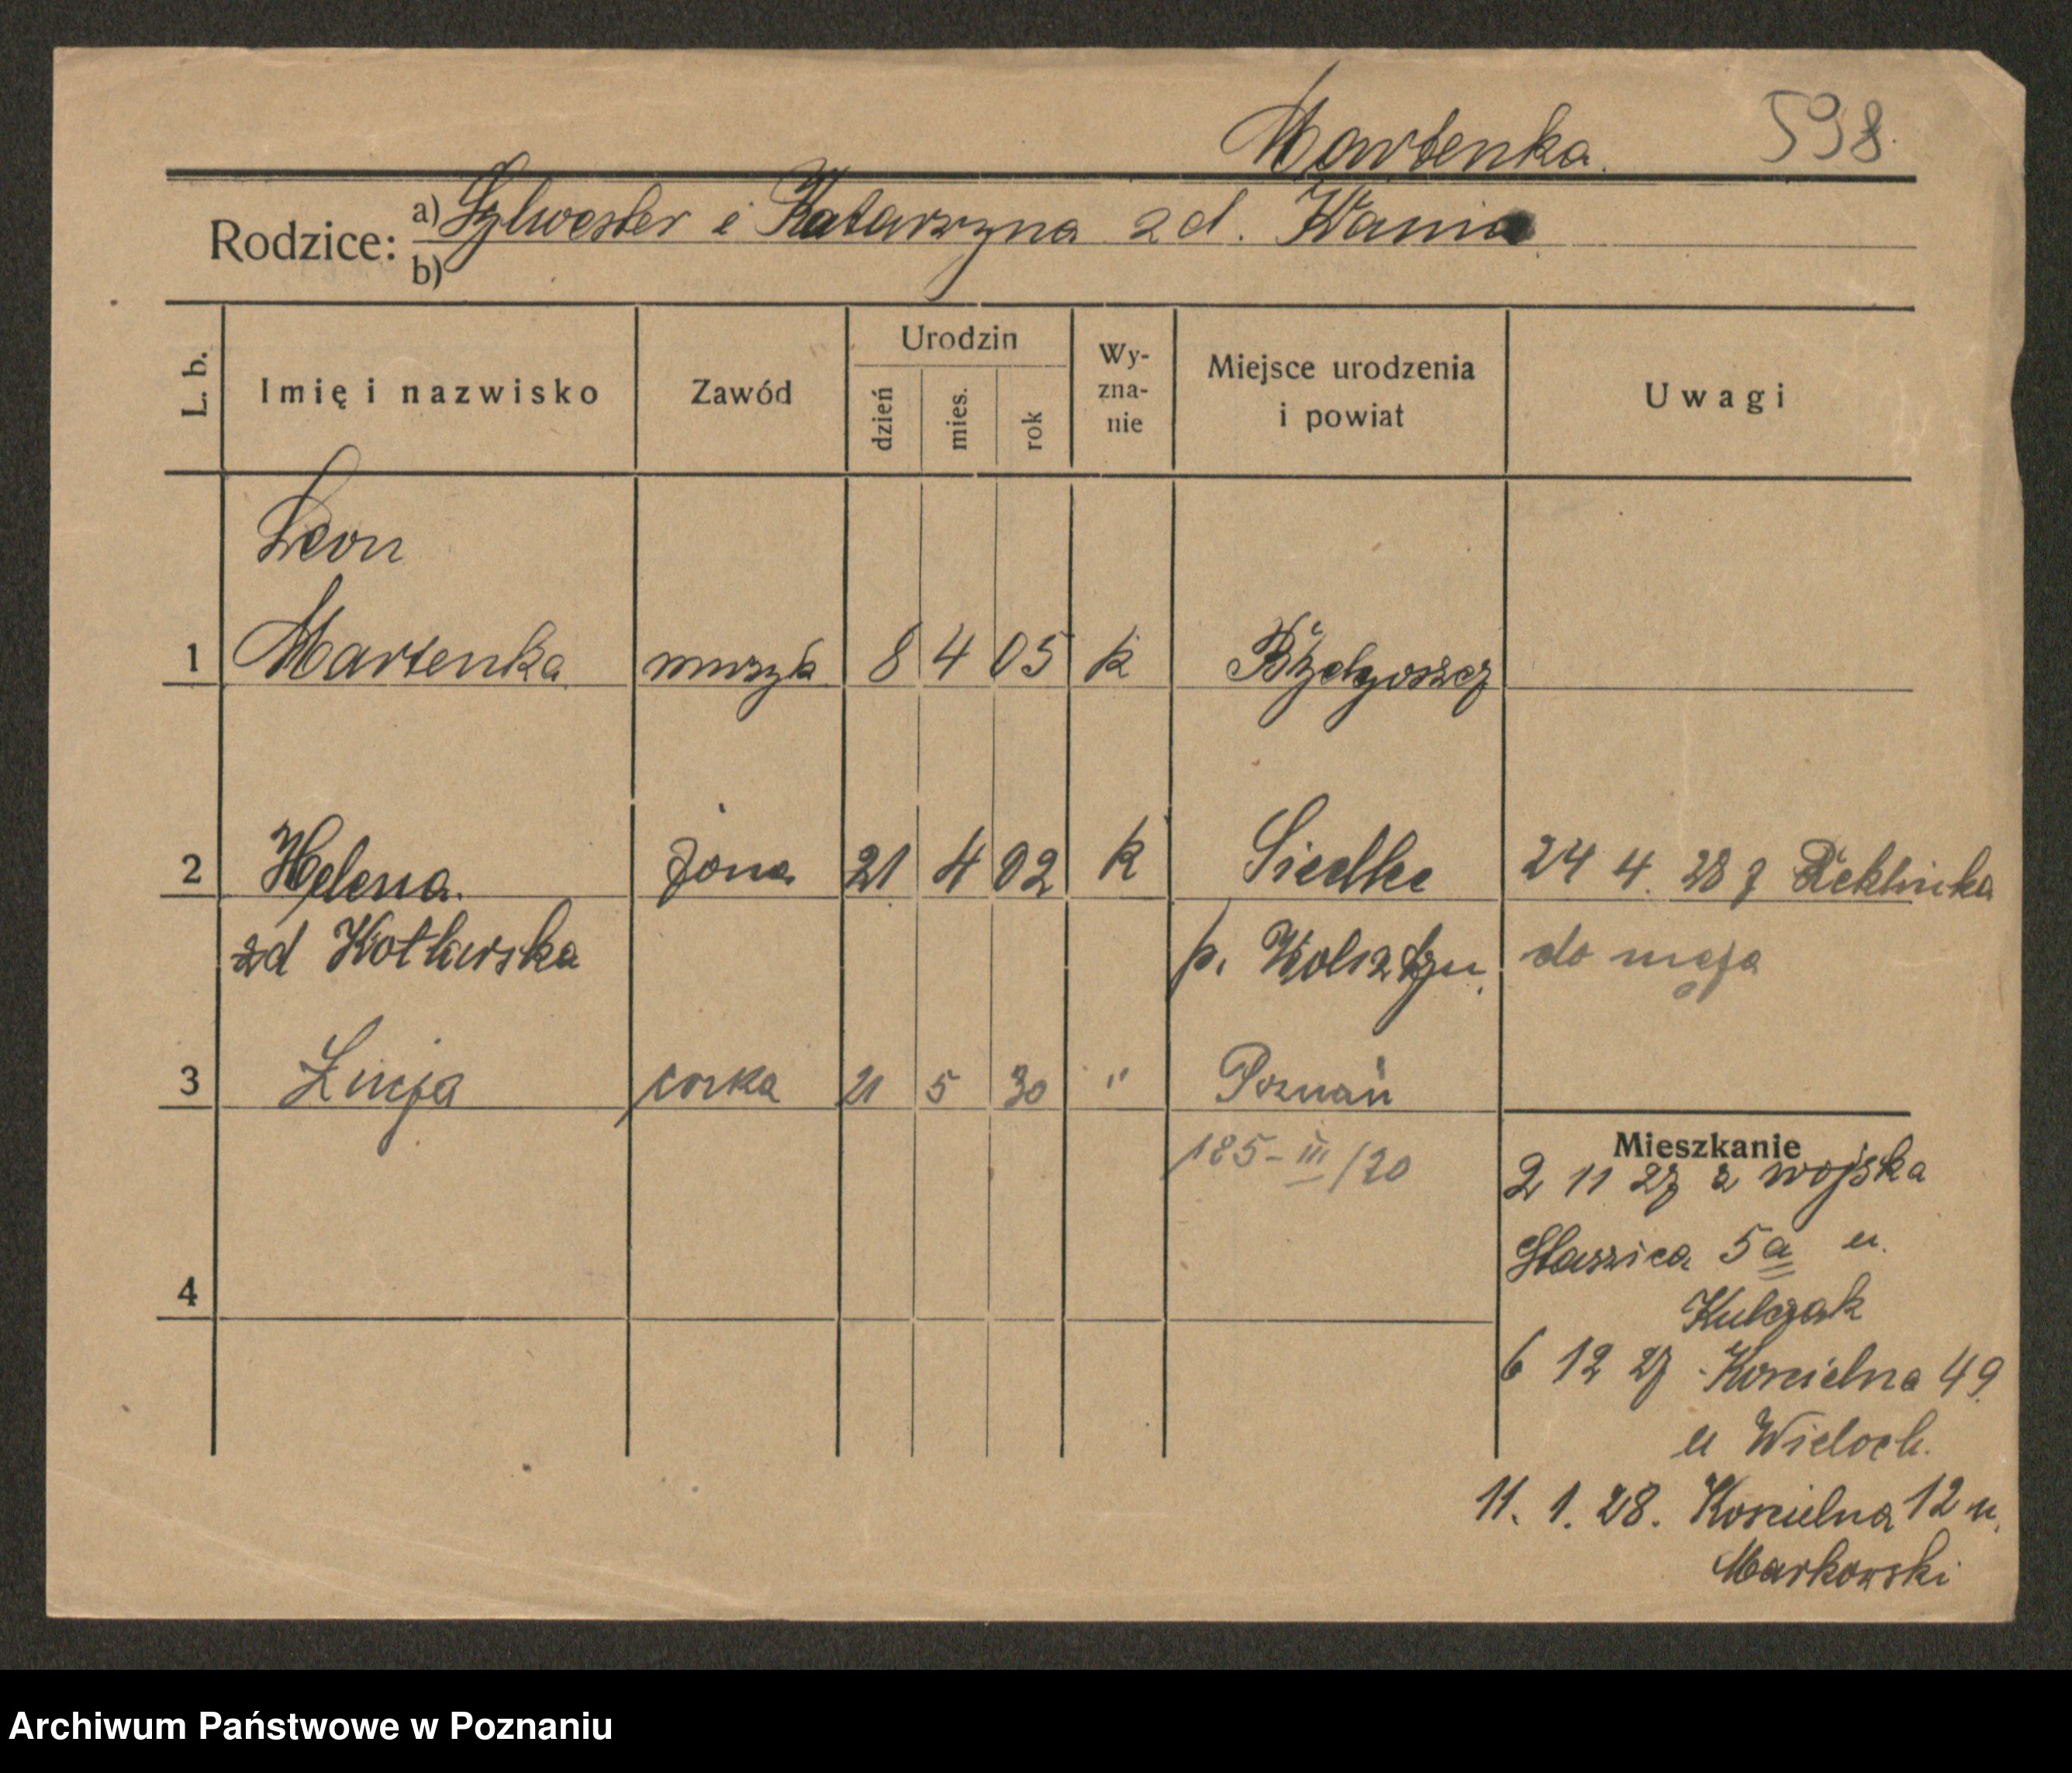 Martenka. 598
Rodzice: a) Sylwester i Katarzyna zd. Wania
b)
L. b. Imię i nazwisko Zawód Urodzin dzień mies. rok Wy-zna-nie Miejsce urodzenia i powiat Uwagi
Leon
1 Martenka muzyk 8 4 05 k Bydgoszcz
2 Helena żona 21 4 02 k Siedlce 24 4. 28 z
zd Kotlarska p. do męża
3 Łucja corka 21 5 30 " Poznań
185-III/20
Mieszkanie
2 11 27 z wojska
Staszica 5a u.
Kulczak
4
6 12 27 Koscielna 49
u Wieloch.
11. 1. 28. Koscielna 12 u.
Markowski
Archiwum Państwowe w Poznaniu